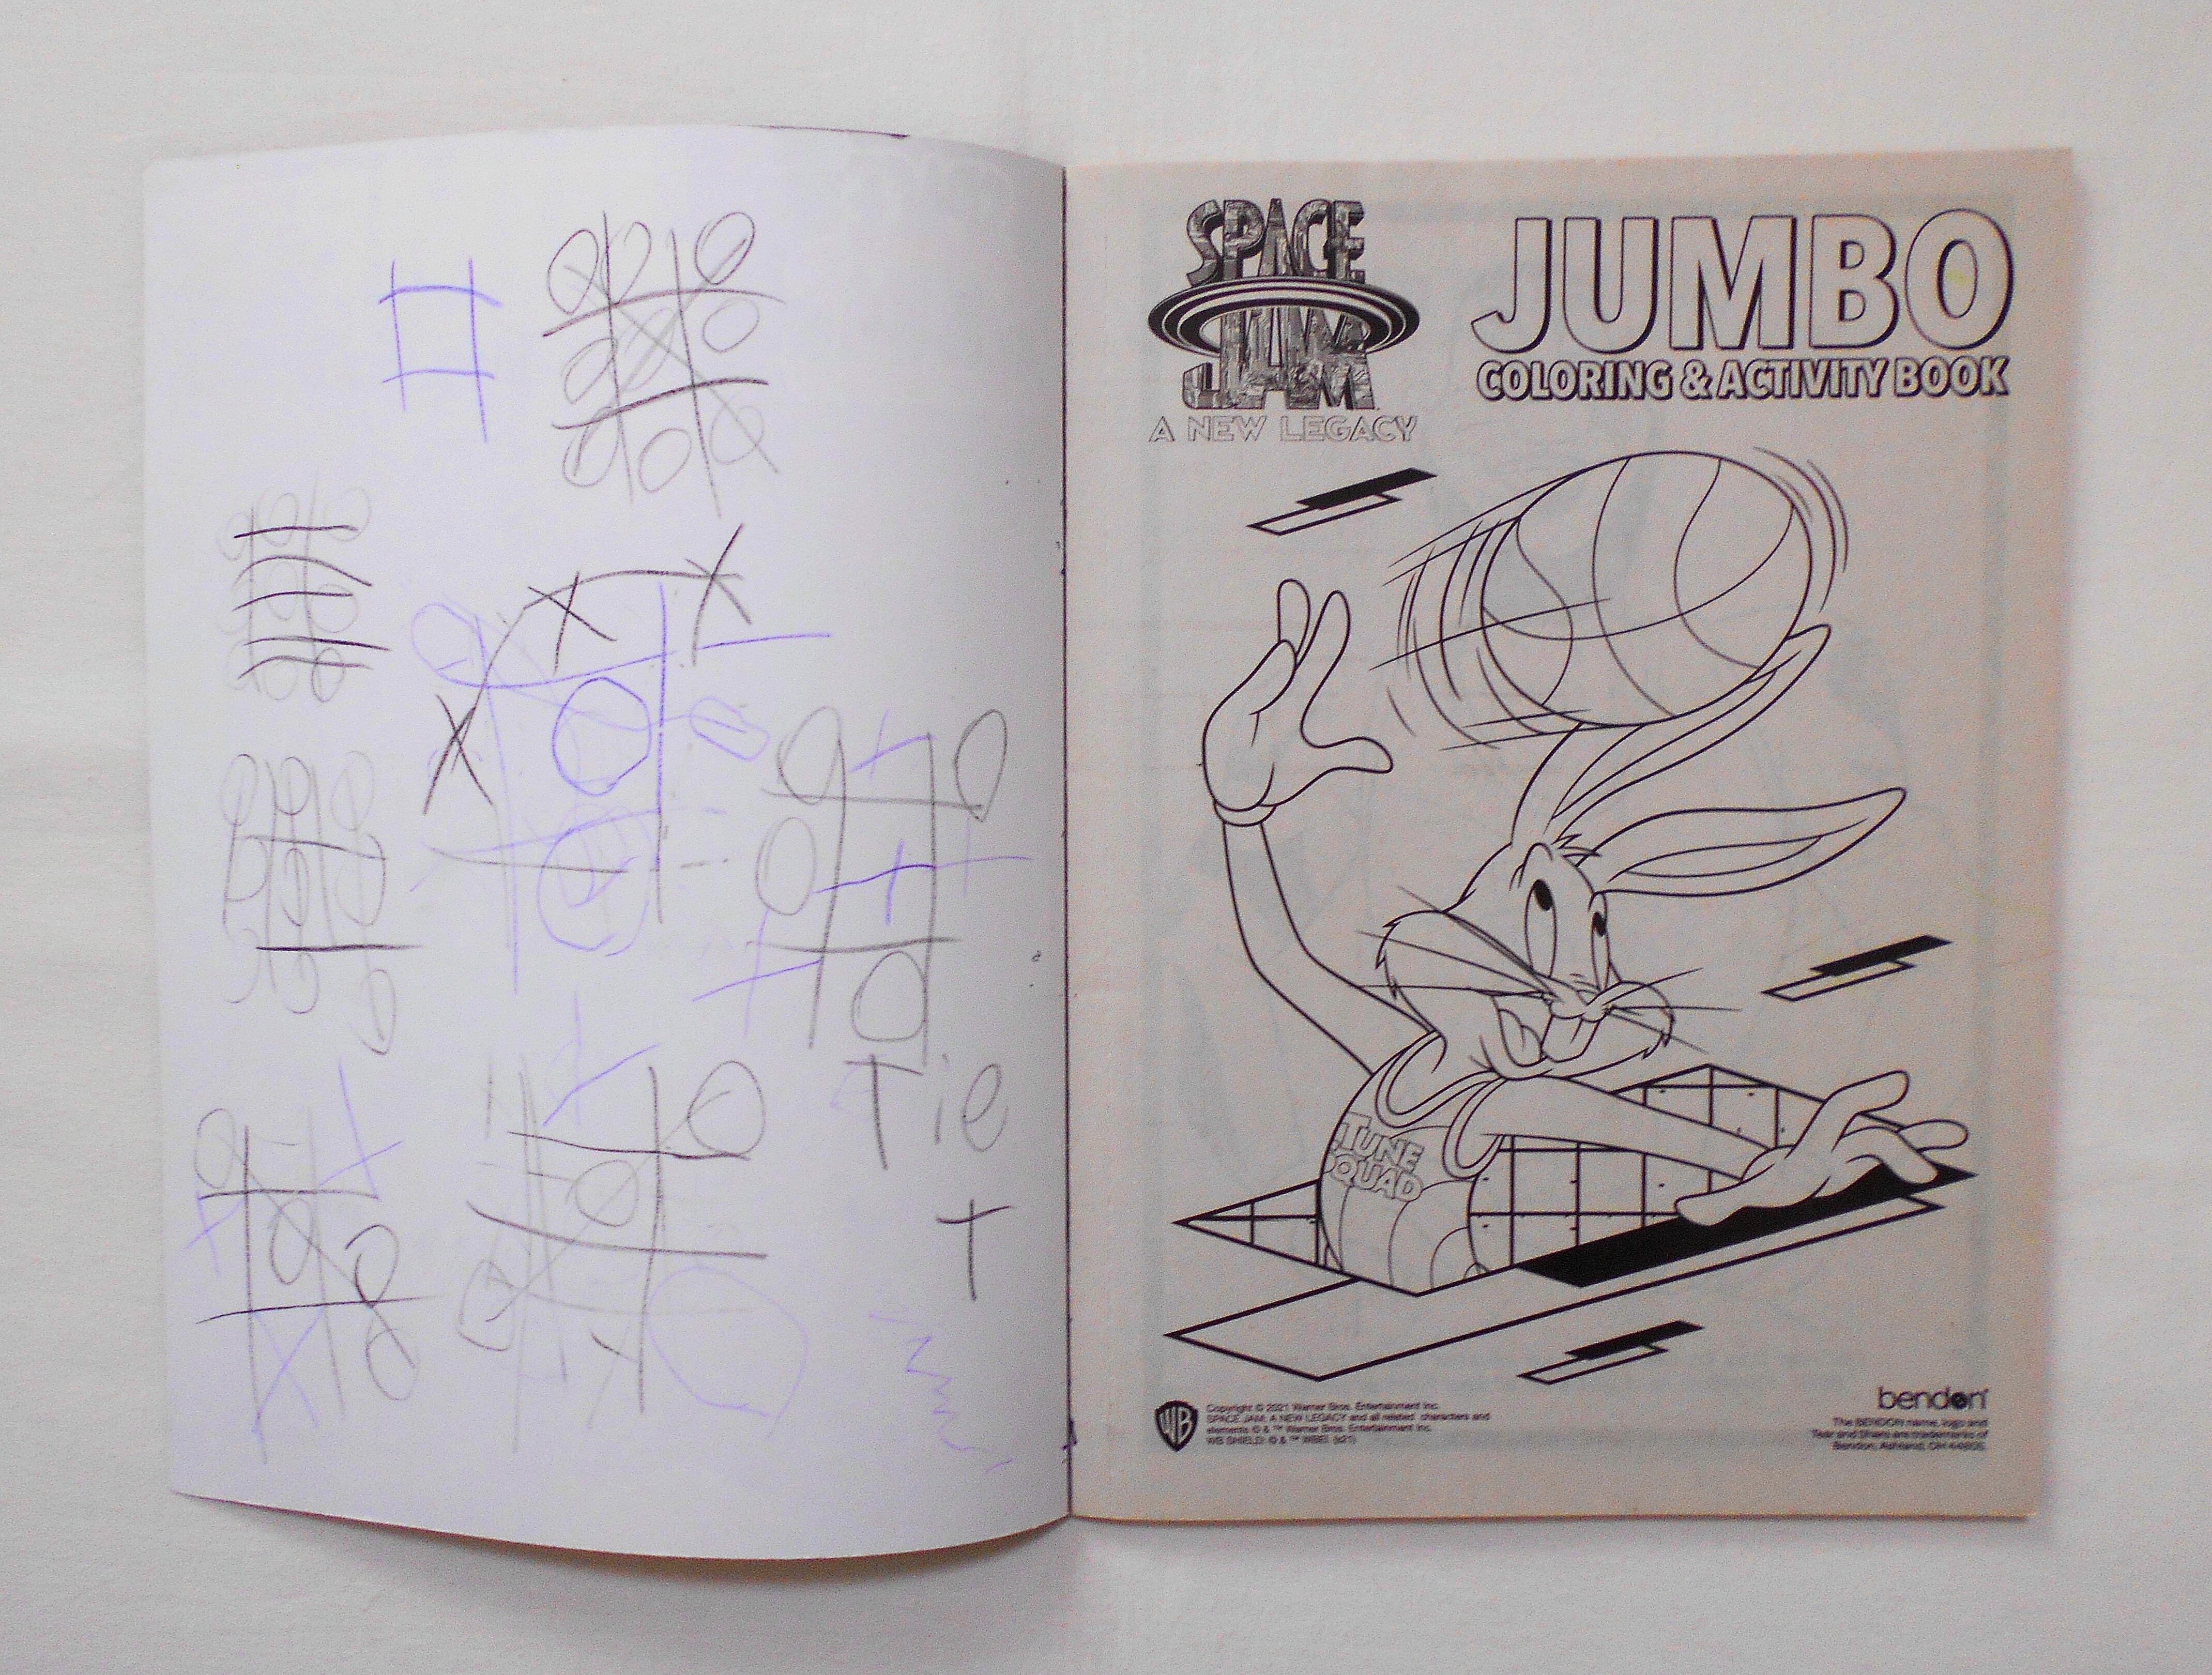 Tie
T
SPACE
JAM
A NEW LEGACY
JUMBO
COLORING & ACTIVITY BOOK
TUNE
SQUAD
WB
Copyright © 2021 Warner Bros. Entertainment Inc.
SPACE JAM: A NEW LEGACY and all related characters and
elements © & ™ Warner Bros. Entertainment Inc.
WB SHIELD: © & ™ WBEI. (s21)
bendon
The BENDON name, logo and
Tear and Share are trademarks of
Bendon, Ashland, OH 44805.